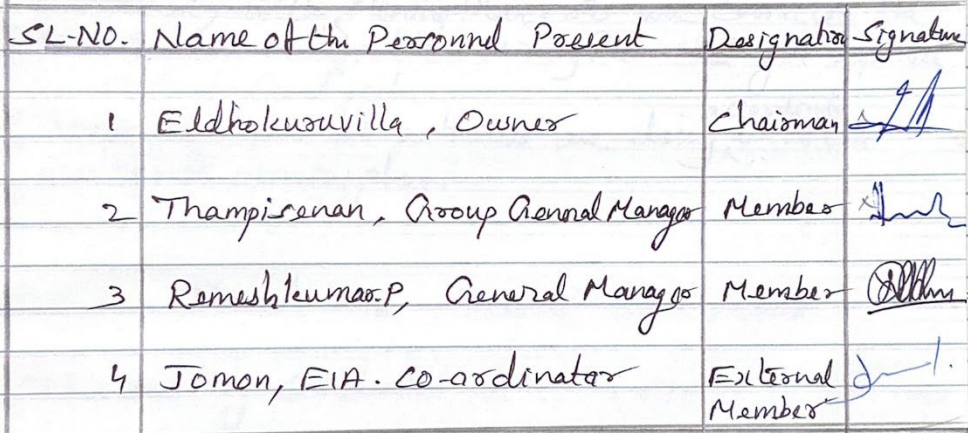 SL-NO. Name of the Personnel Present Designation Signature
1 Eldhokuruvilla, Owner Chairman
2 Thampisenan, Group General Manager Member
3 Remeshkumar.P, General Manager Member
4 Jomon, EIA. Co-ordinator External
Member